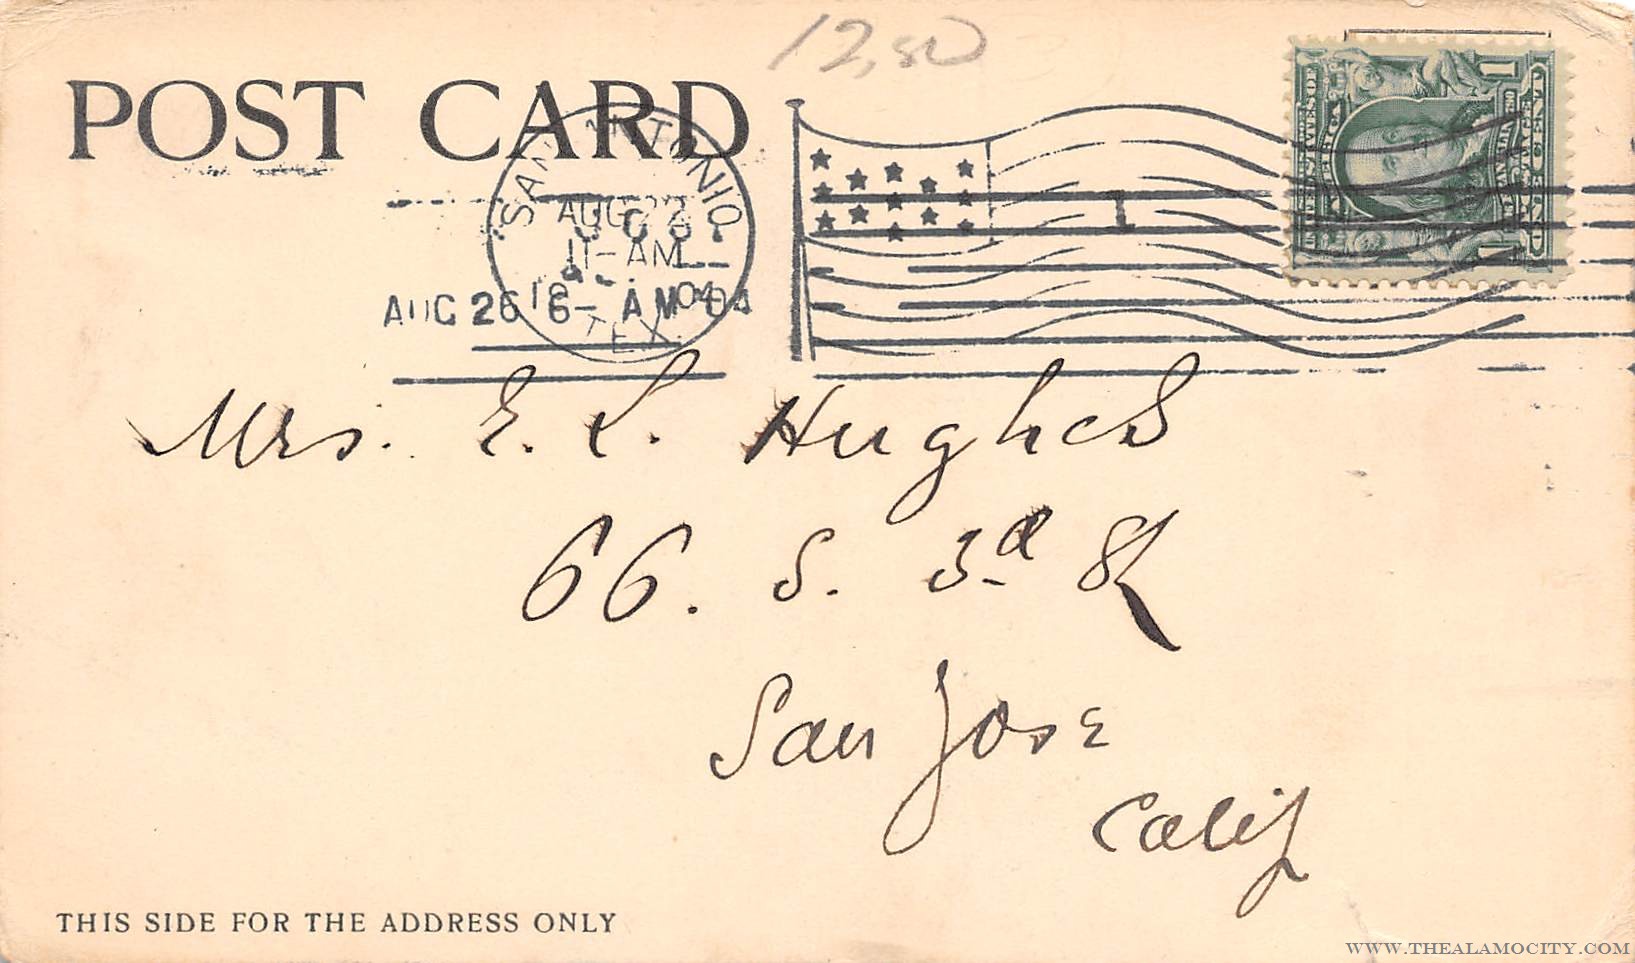 12,50
POST CARD
SAN ANTONIO
AUG 22
11-AM
04
TEX.
1
AUG 26 6- AM 04
Mrs. E. L. Hughes
66. S. 3d St
San Jose
Calif
THIS SIDE FOR THE ADDRESS ONLY
WWW.THEALAMOCITY.COM